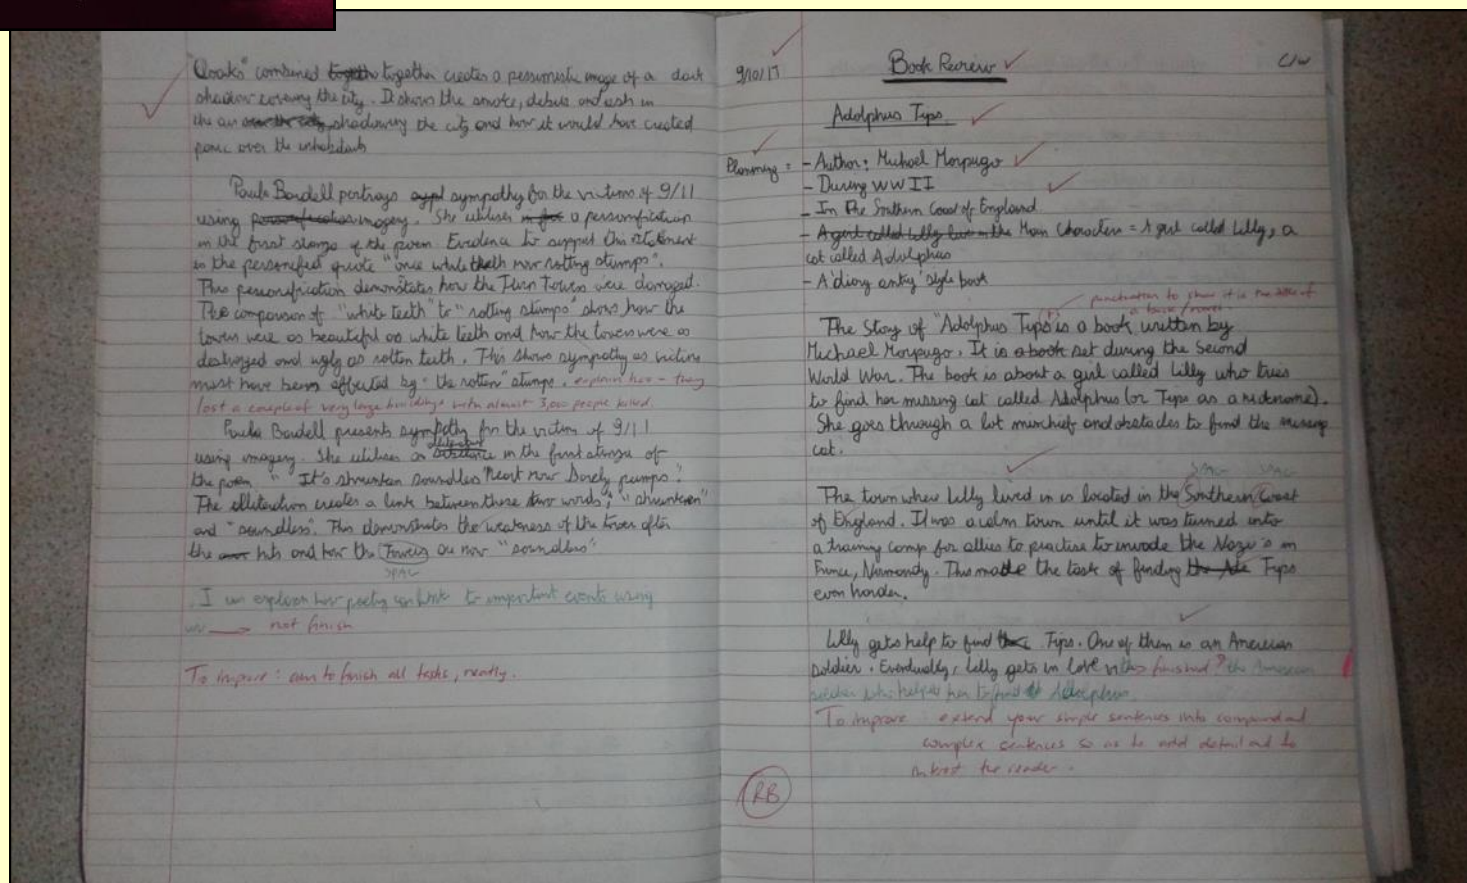 Cloaks" combined together creates a pessimistic image of a dark
shadow covering the city. It shows the smoke, debris and ash in
the air shadowing the city and how it would have created
panic over the inhabitants
Paula Bardell portrays sympathy for the victims of 9/11
using imagery. She utilises a personification
in the first stanza of the poem. Evidence to support this statement
is the personified quote "once white teeth now rotting stumps".
This personification demonstrates how the Twin Towers were damaged.
The comparison of "white teeth" to "rotting stumps" shows how the
towers were as beautiful as white teeth and how the towers were as
destroyed and ugly as rotten teeth. This shows sympathy as victims
must have been affected by "the rotten" stumps. explain how - they
lost a couple of very large buildings with almost 3,000 people killed.
Paula Bardell presents sympathy for the victims of 9/11
using imagery. She utilises an alliteration in the first stanza of
the poem " It's shrunken soundless heart now barely pumps".
The alliteration creates a link between these two words; "shrunken"
and "soundless". This demonstrates the weakness of the tower after
the hits and how the Towers are now "soundless"
SPAG
I can explain how poetry can link to important events using
not finish
To improve: aim to finish all tasks, neatly.
9/10/17
Book Review
C/W
Adolphus Tips
Planning = - Author: Michael Morpugo
- During WWII
- In The Southern Coast of England
- Main Characters = A girl called Lilly, a
cat called Adolphus
- A 'diary entry' style book
punctuation to show it is the title of
a book/novel
The Story of "Adolphus Tips is a book written by
Michael Morpugo. It is set during the Second
World War. The book is about a girl called Lilly who tries
to find her missing cat called Adolphus (or Tips as a nickname).
She goes through a lot mischief and obstacles to find the missing
cat.
SPAG SPAG
The town where Lilly lived in is located in the Southern Coast
of England. It was a calm town until it was turned into
a training camp for allies to practise to invade the Nazi's in
France, Normandy. This made the task of finding Tips
even harder.
Lilly gets help to find Tips. One of them is an American
soldier. Eventually, Lilly gets in love with finished? the American
soldier who helped her to find Adolphus
To improve: extend your simple sentences into compound and
complex sentences so as to add detail and to
interest the reader.
RB